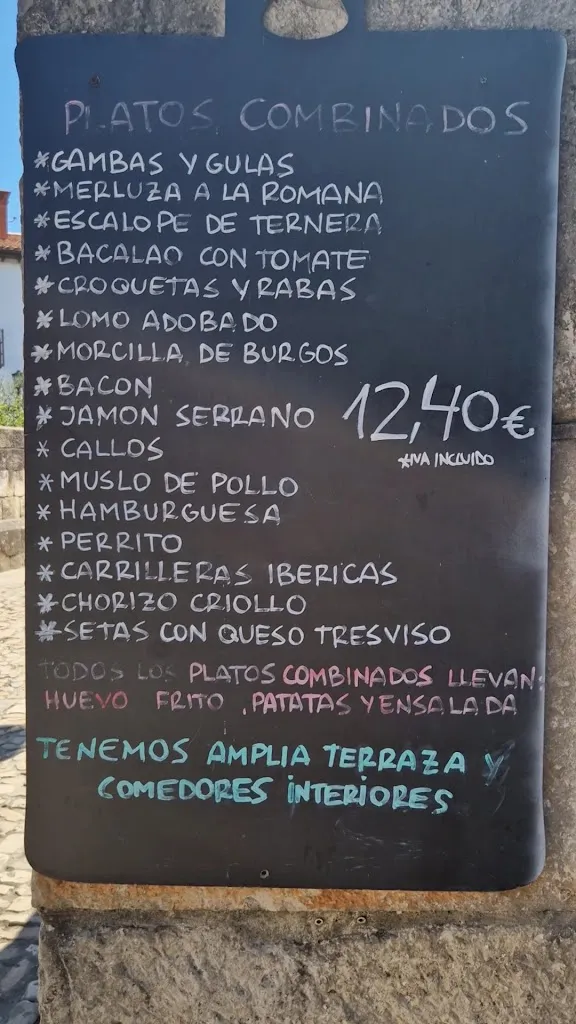 PLATOS COMBINADOS
*GAMBAS Y GULAS
*MERLUZA A LA ROMANA
*ESCALOPE DE TERNERA
*BACALAO CON TOMATE
*CROQUETAS Y RABAS
*LOMO ADOBADO
*MORCILLA DE BURGOS
*BACON
*JAMON SERRANO
12,40€
*IVA INCLUIDO
*CALLOS
*MUSLO DE POLLO
*HAMBURGUESA
*PERRITO
*CARRILLERAS IBERICAS
*CHORIZO CRIOLLO
*SETAS CON QUESO TRESVISO
TODOS LOS PLATOS COMBINADOS LLEVAN:
HUEVO FRITO, PATATAS Y ENSALADA
TENEMOS AMPLIA TERRAZA Y
COMEDORES INTERIORES